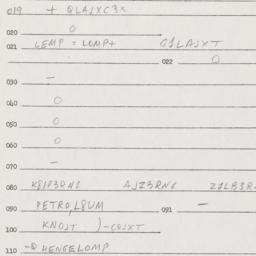 019 + QLAJXC3X
020 0
021 LEMP = LOMP+ G1LAJXT
022 0
030 -
040 0
050 0
060 0
070 -
080 K8IP3RN1 AJZ3RN1 Z1LB3R
090 PETROL8UM 091 -
100 KNOJT )-COJXT
110 -Q HENGELOMP